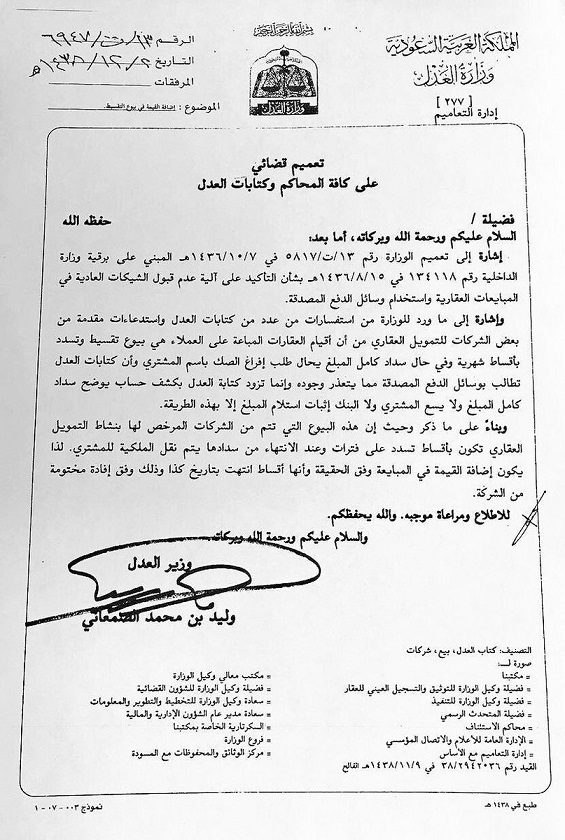 بسم الله الرحمن الرحيم
المملكة العربية السعودية
وزارة العدل
[ ٢٧٧ ]
إدارة التعاميم
الرقم ١٣/ت/٦٩٤٧
التاريخ ١٤٣٨/١٢/٢هـ
المرفقات
الموضوع : إضافة القيمة في بيوع التقسيط.
وزارة العدل
تعميم قضائي
على كافة المحاكم وكتابات العدل
فضيلة / حفظه الله
السلام عليكم ورحمة الله وبركاته، أما بعد:
إشارة إلى تعميم الوزارة رقم ١٣/ت/٥٨١٧ في ١٤٣٦/١٠/٧هـ المبني على برقية وزارة
الداخلية رقم ١٣٤١١٨ في ١٤٣٦/٨/١٥هـ بشأن التأكيد على آلية عدم قبول الشيكات العادية في
المبايعات العقارية واستخدام وسائل الدفع المصدقة.
وإشارة إلى ما ورد للوزارة من استفسارات من عدد من كتابات العدل واستدعاءات مقدمة من
بعض الشركات للتمويل العقاري من أن أقيام العقارات المباعة على العملاء هي بيوع تقسيط وتسدد
بأقساط شهرية وفي حال سداد كامل المبلغ يحال طلب إفراغ الصك باسم المشتري وأن كتابات العدل
تطالب بوسائل الدفع المصدقة مما يتعذر وجوده وإنما تزود كتابة العدل بكشف حساب يوضح سداد
كامل المبلغ ولا يسع المشتري ولا البنك إثبات استلام المبلغ إلا بهذه الطريقة.
وبناءً على ما ذكر وحيث إن هذه البيوع التي تتم من الشركات المرخص لها بنشاط التمويل
العقاري تكون بأقساط تسدد على فترات وعند الانتهاء من سدادها يتم نقل الملكية للمشتري. لذا
يكون إضافة القيمة في المبايعة وفق الحقيقة وأنها أقساط انتهت بتاريخ كذا وذلك وفق إفادة مختومة
من الشركة.
للاطلاع ومراعاة موجبه. والله يحفظكم.
والسلام عليكم ورحمة الله وبركاته.
وزير العدل
وليد بن محمد الصمعاني
التصنيف: كتاب العدل، بيع، شركات
صورة لـ:
= مكتبنا
= فضيلة وكيل الوزارة للتوثيق والتسجيل العيني للعقار
= فضيلة وكيل الوزارة للتنفيذ
= فضيلة المتحدث الرسمي
= محاكم الاستئناف
= الإدارة العامة للأعلام والاتصال المؤسسي
= إدارة التعاميم مع الأساس
القيد رقم ٣٨/٢٩٤٢٠٣٦ في ١٤٣٨/١١/٩هـ الفالح
= مكتب معالي وكيل الوزارة
= فضيلة وكيل الوزارة للشؤون القضائية
= سعادة وكيل الوزارة للتخطيط والتطوير والمعلومات
= سعادة مدير عام الشؤون الإدارية والمالية
= السكرتارية الخاصة بمكتبنا
= فروع الوزارة
= مركز الوثائق والمحفوظات مع المسودة
طبع في ١٤٣٨ هـ
نموذج ٠٠٣ - ٠٧ - ١